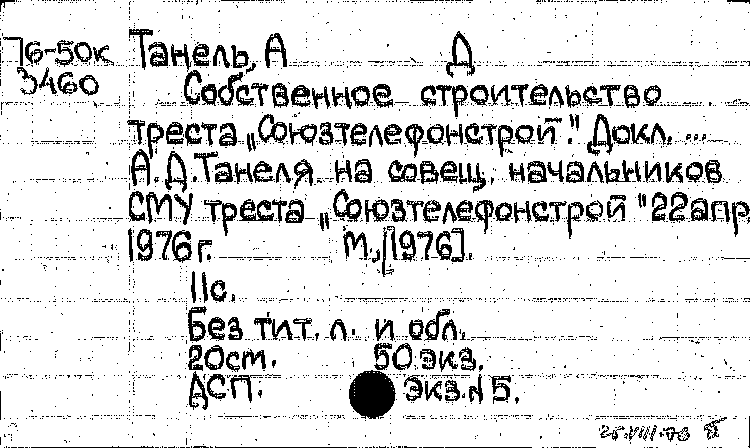 76-50к Танель, А Д
3460
Собственное строительство
треста „Союзтелефонстрой." Докл. ...
А.Д.Танеля на совещ. начальников
СМУ треста „Союзтелефонстрой "22апр
1976г. М.,[1976].
11с.
Без тит. л. и обл.
20см. 50экз.
ДСП. Экз.№5.
25.VIII.76